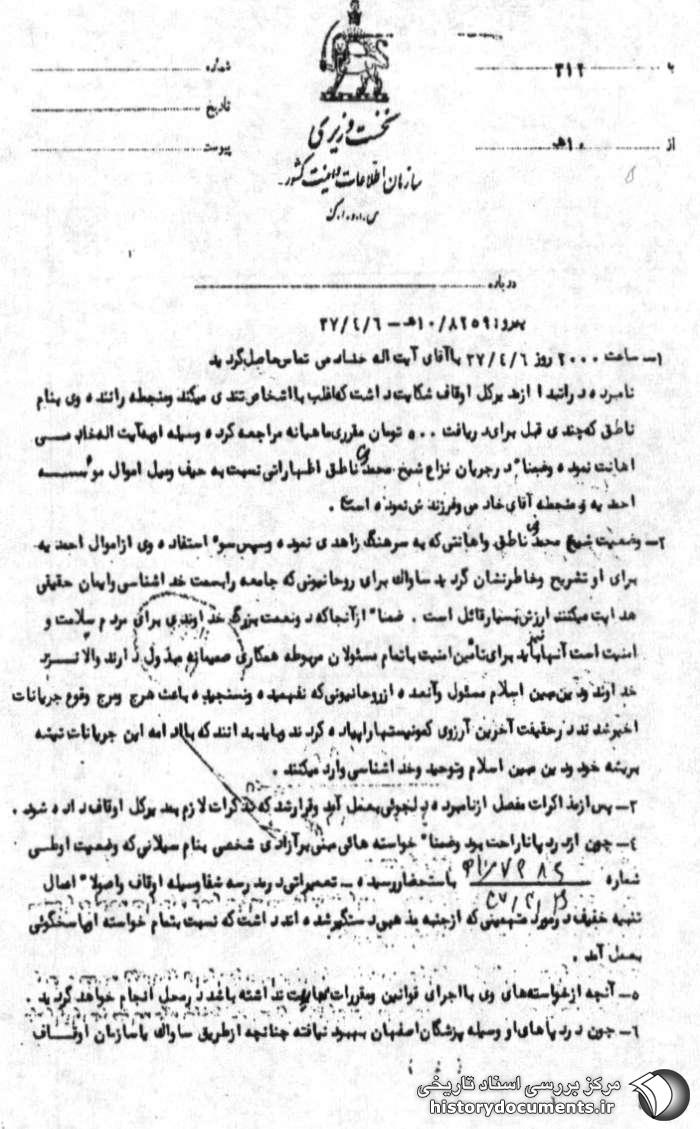 به ۳۱۲
از ۱۰ هـ
شماره
تاریخ
پیوست
نخست وزیری
سازمان اطلاعات و امنیت کشور
س.ا.و.ا.ک
درباره
پیرو: ۱۰/۸۲۵۹هـ - ۳۷/۴/۶
۱- ساعت ۲۰۰۰ روز ۳۷/۴/۶ با آقای آیت اله خادمی تماس حاصل گردید
نامبرده در ابتدا از مدیرکل اوقاف شکایت داشت که اغلب با اشخاص تندی میکند و منجمله راننده وی بنام
ناطق که چندی قبل برای دریافت ۵۰۰ تومان مقرری ماهیانه مراجعه کرده وسیله او به آیت اله خادمی
اهانت نموده و ضمناً در جریان نزاع شیخ محمد ناطق اظهاراتی نسبت به حیف و میل اموال موسسه
احمدیه و منجمله آقای خادمی و فرزندش نموده است.
۲- وضعیت شیخ محمد ناطق و اهانتی که به سرهنگ زاهدی نموده و سپس سوء استفاده وی از اموال احمدیه
برای او تشریح و خاطرنشان گردید ساواک برای روحانیونی که جامعه را بسمت خداشناسی و ایمان حقیقی
هدایت میکنند ارزش بسیار قائل است. ضمناً از آنجا که دو نعمت بزرگ خداوندی برای مردم سلامت و
امنیت است آنها باید نیز برای تأمین امنیت با تمام مسئولان مربوطه همکاری صمیمانه مبذول دارند والا نزد
خداوند و دین مبین اسلام مسئول و آنعده از روحانیونی که نفهمیده و نسنجیده باعث هرج و مرج و وقوع جریانات
اخیر شدند در حقیقت آخرین آرزوی کمونیستها را پیاده کردند و باید بدانند که با ادامه این جریانات تیشه
بریشه خود و دین مبین اسلام و توحید و خداشناسی وارد میکنند.
۳- پس از مذاکرات مفصل از نامبرده دلجوئی بعمل آمد و قرار شد که تذکرات لازم بمدیرکل اوقاف داده شود.
۴- چون از درد پا ناراحت بود و ضمناً خواسته هائی مبنی بر آزادی شخصی بنام سیلانی که وضعیت او طی
شماره باستحضار رسیده - تعمیراتی در مدرسه شفا وسیله اوقاف و اصولاً اعمال
تنبیه خفیف در مورد متهمینی که از جنبه مذهبی دستگیر شده اند داشت که نسبت بتمام خواسته او پاسخگوئی
بعمل آمد.
۵- آنچه از خواسته های وی با اجرای قوانین و مقررات مغایرت نداشته باشد در محل انجام خواهد گردید.
۶- چون درد پاهای او وسیله پزشگان اصفهان بهبود نیافته چنانچه از طریق ساواک با سازمان اوقاف
مرکز بررسی اسناد تاریخی
historydocuments.ir